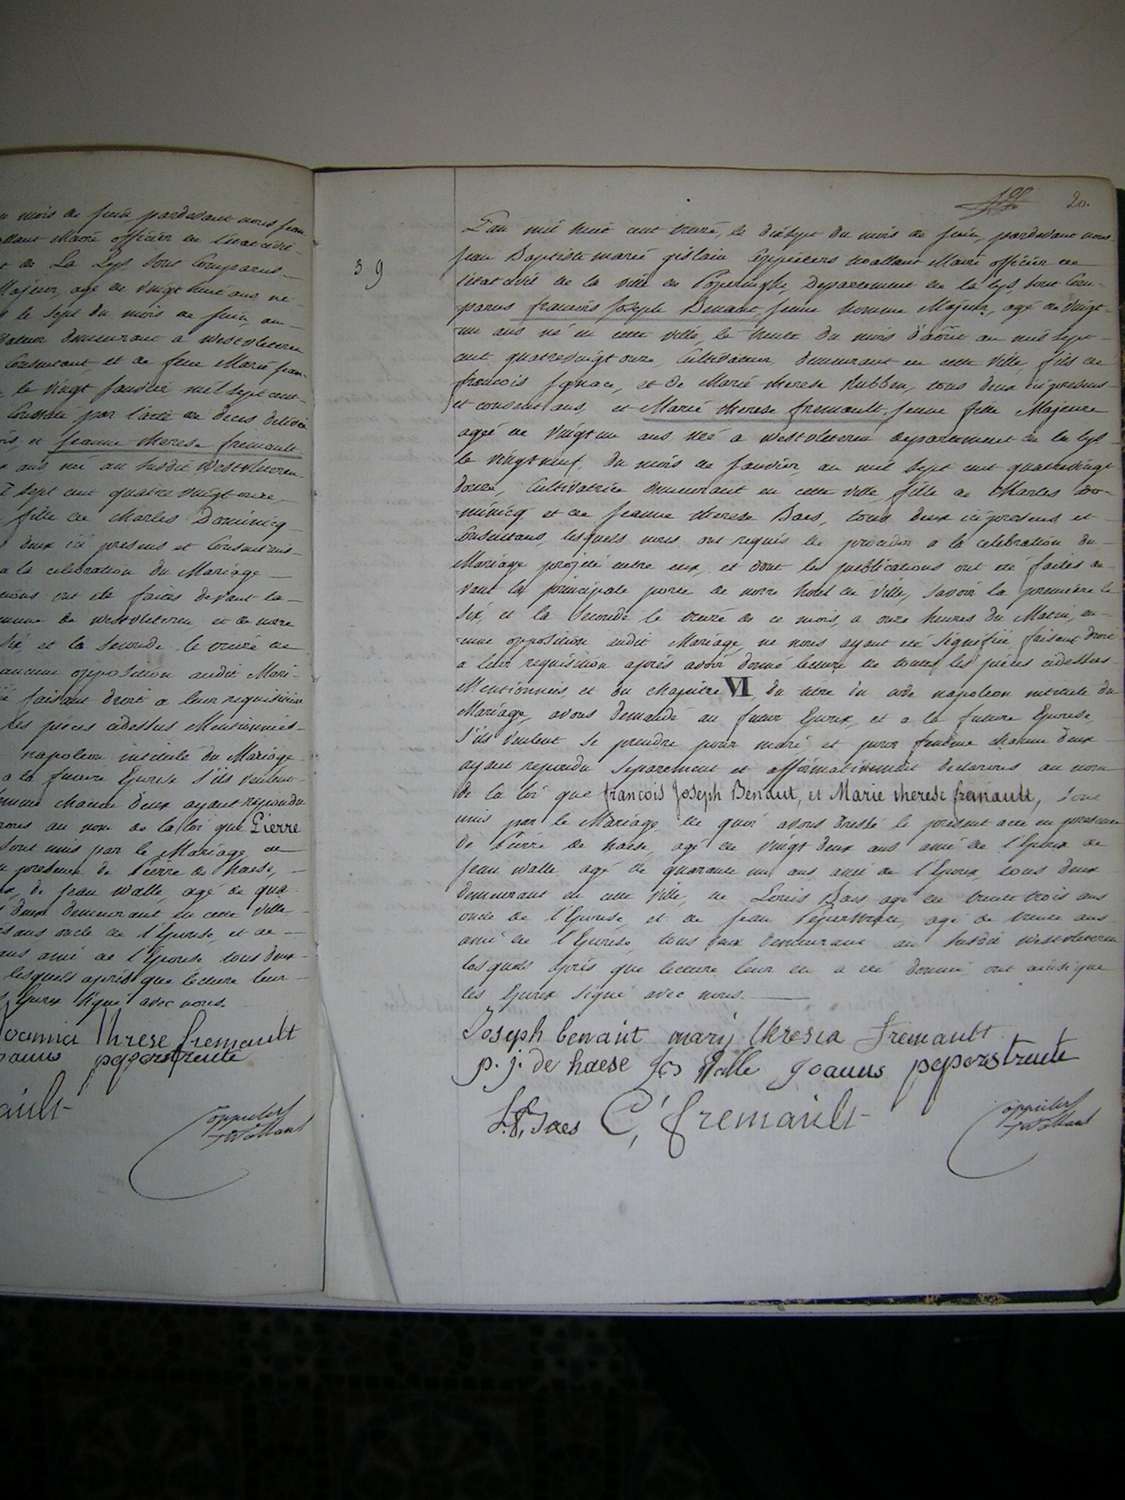 u mois de juin pardevant nous jean
ollant Maire officier de l'état civil
t de La Lys sont Comparus
Majeur, agé de vingt
le sept du mois de juin, an
vateur demeurant a westvleteren
Consentant et de feue Marie jean
le vingt janvier mil sept cent
Constaté par l'acte de deces delivré
is, et jeanne therese fremault
ans née au susdit Westvleteren
l sept cent quatre vingt onze,
fille de Charles Dominicq
deux ici presens et Consentans
a la celebration du Mariage
nous ont été faites devant la
mune de westvleteren et de notre
six et la seconde le treize de
aucune opposition audit Mari
ié faisant droit a leur requisition
les pièces cidessus Mentionnées
napoleon intitulé du Mariage
a la future Epouse s'ils veulent
femme chacun d'eux ayant repondu
rons au nom de la loi que Pierre
sont unis par le Mariage de
presence de Pierre de haese,
de jean walle, agé de qua
deux demeurant en cette ville
ans oncle de l'Epouse, et de
ans ami de l'Epouse tous deux
lesquels après que lecture leur
Epoux signé avec nous.
Joannia threse fremault
oanus peperstraete
ault
Coppieters
t'Wallant
39
20.
L'an mil huit cent treize, le dixsept du mois de juin, pardevant nous
jean Baptiste marie gislain Coppieters twallant Maire officier de
l'état civil de la ville de Poperinghe, Departement de la Lys sont Com
parus francois Joseph Benaut, jeune homme Majeur, agé de vingt-
un ans né en cette ville, le trente du mois d'aôut an mil sept
cent quatrevingt onze, Cultivateur demeurant en cette ville fils de
francois Ignace, et de Marie therese Rubben, tous deux ici presens
et consentans, et Marie therese fremault, jeune fille Majeure
agée de vingt un ans née a westvleteren departement de la Lys
le vingtneuf du mois de janvier, an mil sept cent quatrevingt
douze, Cultivatrice demeurant en cette ville fille de Charles Do-
minicq et de jeanne therese Baes, tous deux ici presens et
Consentans, lesquels nous ont requis de procéder a la celebration du
Mariage projeté entre eux, et dont les publications ont été faites de
vant la principale porte de notre hotel de ville, savoir la première le
six et la seconde le treize de ce mois, a onze heures du Matin, au
cune opposition audit Mariage ne nous ayant eté signifiée faisant droit
a leur requisition après avoir donné lecture de toutes les pièces cidessus
Mentionnées, et du chapitre VI du titre du code napoleon intitulé du
Mariage, avons demandé au futur Epoux, et a la future Epouse,
s'ils veulent se prendre pour mari et pour femme chacun d'eux
ayant repondu separement et affirmativement declarons au nom
de la loi que francois Joseph Benaut, et Marie therese fremault, sont
unis par le Mariage de quoi avons dressé le present acte en presence
de Pierre de haese, agé de vingt deux ans ami de l'Epoux de
jean walle agé de quarante un ans ami de l'Epoux, tous deux
demeurant en cette ville, de Louis Baes agé de trente trois ans
oncle de l'Epouse, et de jean Peperstraete, agé de trente ans
ami de l'Epouse, tous deux demeurant au susdit westvleteren
lesquels après que lecture leur en a été donnée ont ainsi que
les Epoux signé avec nous.
Joseph benaut marij theresia fremault
p. j. de haese Jos Walle Joanus peperstraete
L. Baes C, fremault
Coppieters
t'Wallant